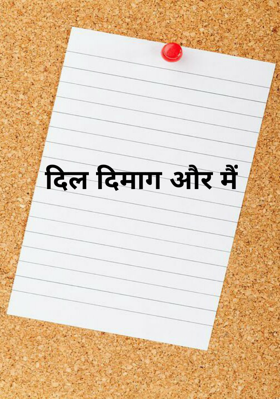 दिल दिमाग और मैं